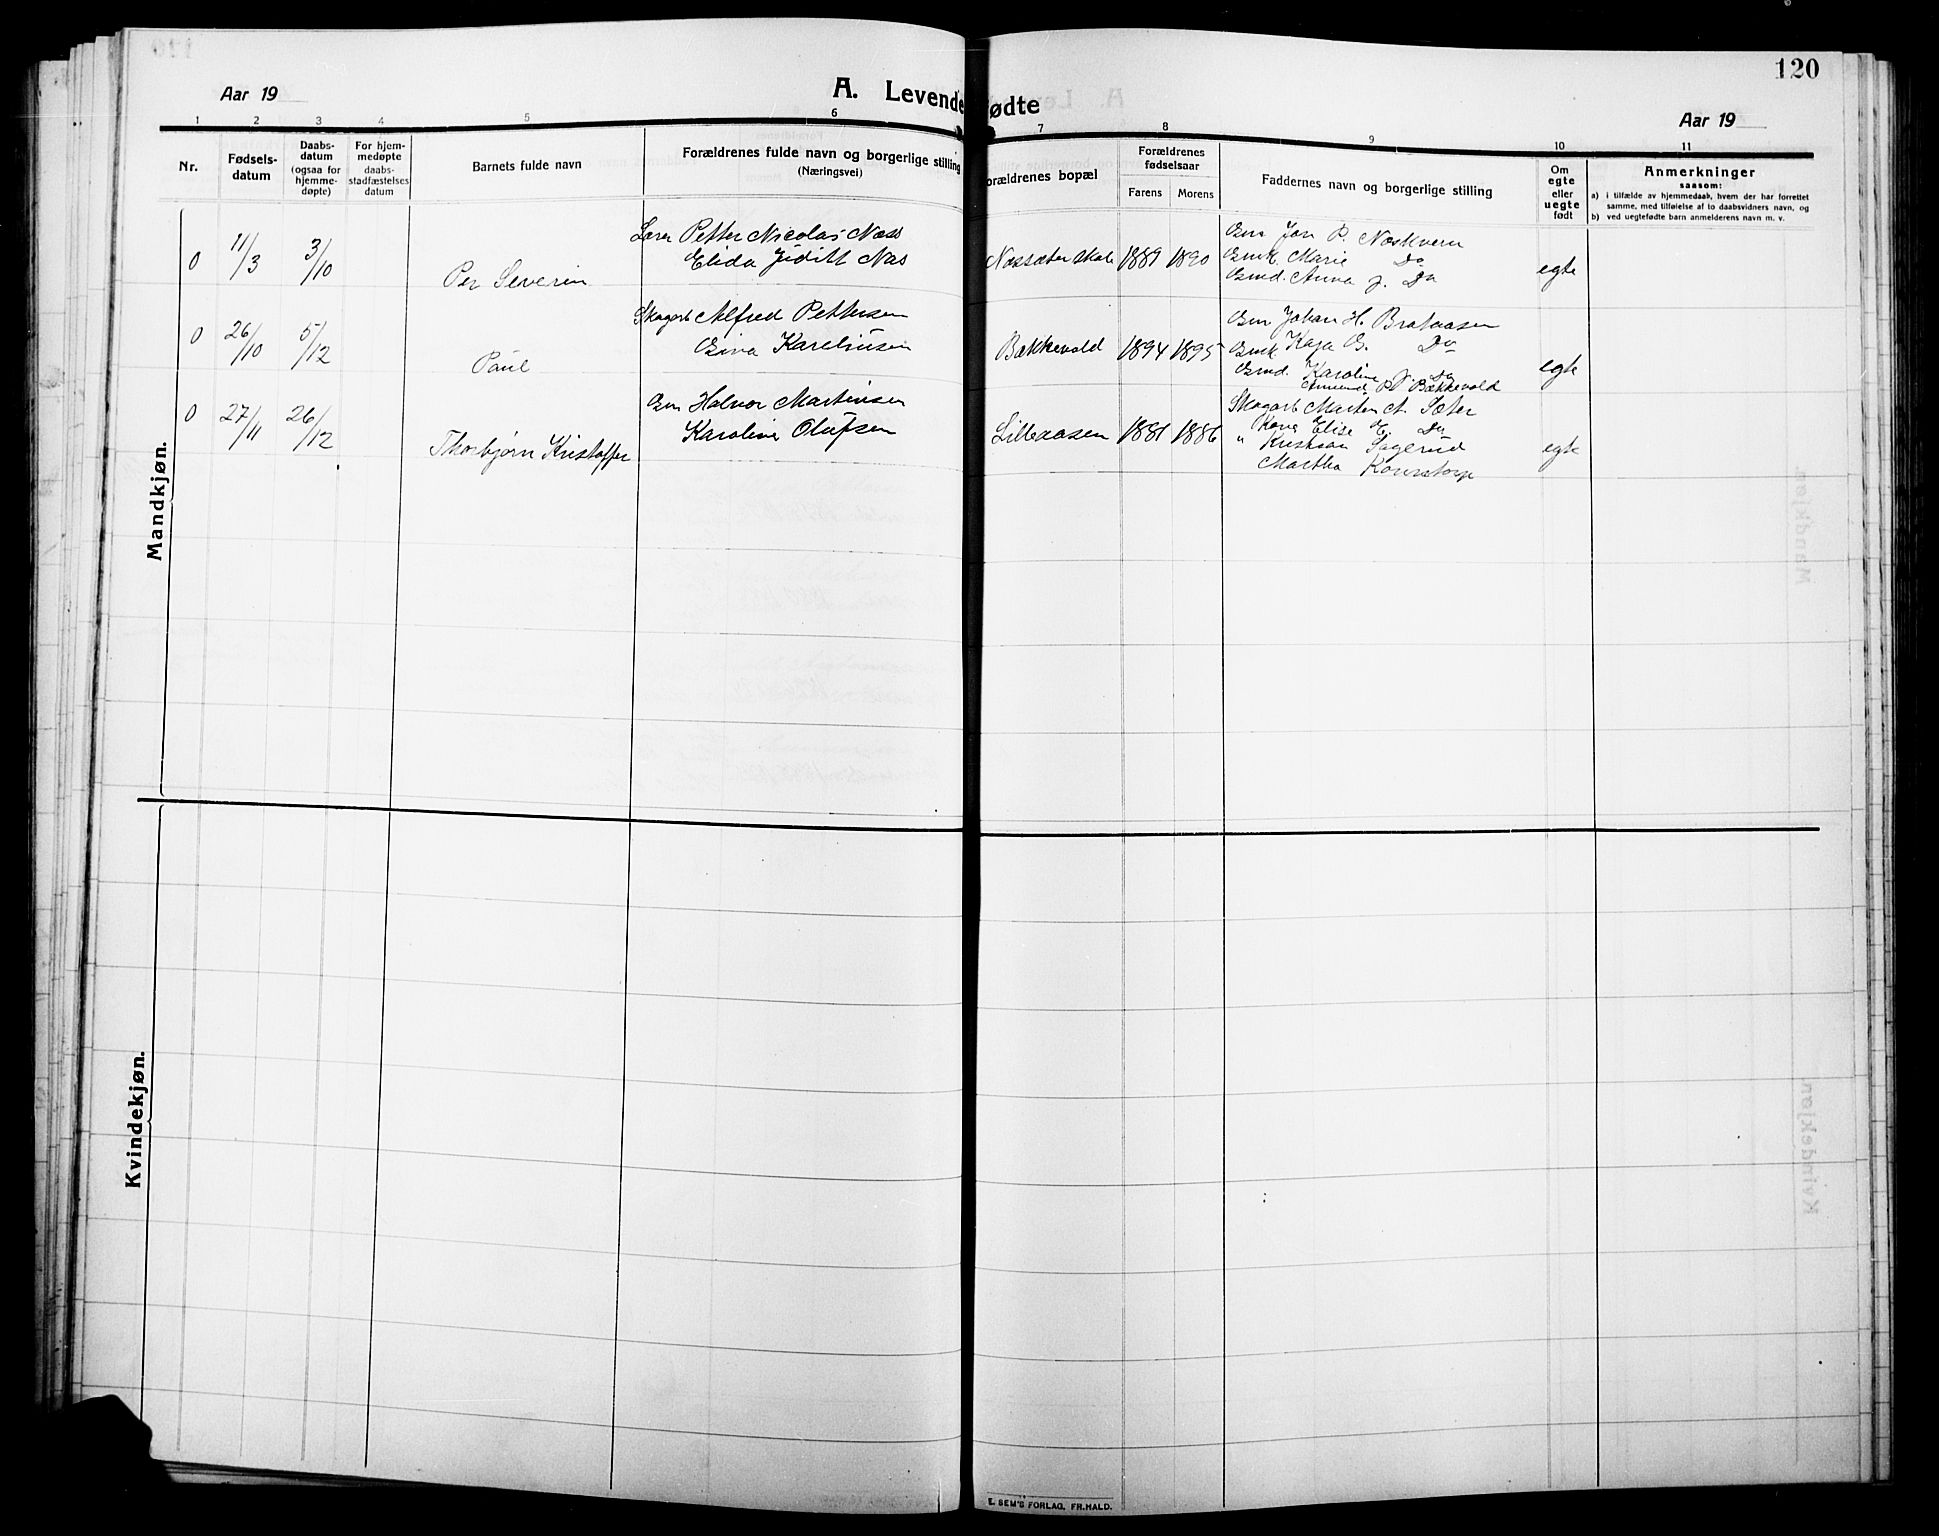 120
Aar 19
A. Levendefødte
Aar 19
1 2 3 4 5 6 7 8 9 10 11
Nr.
Fødsels-
datum
Daabs-
datum
(ogsaa for
hjemme-
døpte)
For hjem-
medøpte
daabs-
stadfæstelses
datum
Barnets fulde navn
Forældrenes fulde navn og borgerlige stilling
(Næringsvei)
Forældrenes bopæl
Forældrenes
fødselsaar
Farens Morens
Faddernes navn og borgerlige stilling
Om
egte
eller
uegte
født
Anmerkninger
saasom:
a) i tilfælde av hjemmedaab, hvem der har forrettet
samme, med tilføielse af to daabsvidners navn, og
b) ved uegtefødte barn anmelderens navn m. v.
Mandkjøn.
0 11/3 3/10 Per Severin
Lærer Petter Nicolai Næss
Elida Juditt Næs
Næssæter skole 1889 1890
Gm Jon P. Næskvern
Gmk. Marie Do
Gmd. Anna J. Do
egte
0 26/10 5/12 Paul
Skogarb Alfred Pettersen
Gina Kareliusen
Bækkevold 1894 1895
Gm Johan H. Brataasen
Gmk Kaja G. Do
Gmd. Karoline J. Do
Amund P. Bækkevold
egte
0 27/11 26/12 Thorbjørn Kristoffer
Gm Halvor Martinsen
Karoline Olufsen
Lilleaasen 1881 1886
Skogarb Marten A. Sæter
Kone Elise E. Do
" Kristian Sagerud
Martha
egte
Kvindekjøn.
E. SEM'S FORLAG, FR.HALD.